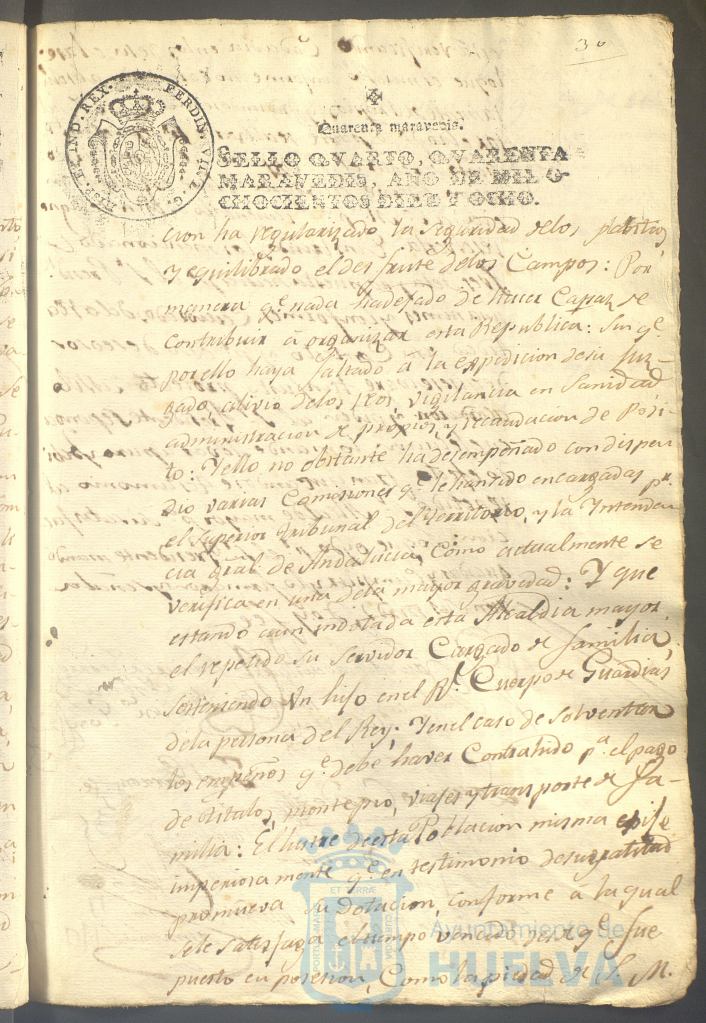 30
HISP. ET IND. REX. FERDIN. VII. D. G.
Quarenta maravedis.
SELLO QVARTO, QVARENTA
MARAVEDIS, AÑO DE MIL O-
CHOCIENTOS DIEZ Y OCHO.
cion ha regularizado la seguridad delos plantios
y equilibrado el desfrute delos Campos: Por
manera qe. nada hadejado de hacer Capaz de
contribuir á organizar esta Republica: Sin qe.
por ello haya faltado á la expedicion desu Juz-
gado, alivio delos reos, vigilancia en Sanidad
administracion de propios, y recaudacion de Posi-
to: Y ello no obstante ha desempeñado con dispen-
dio varias Comisiones qe. le han sido encargadas pr.
el Superior Tribunal del Territorio, y la Intenden
cia gral. de Andalucia, como actualmente se
verifica en una dela mayor gravedad: Y que
estando aun indotada esta Alcaldia mayor,
el repetido su servidor Cargado de familia,
sosteniendo Un hijo en el Rl. Cuerpo de Guardias
dela persona del Rey; Y en el caso de solventar
los empeños qe. debe haver Contrahido pa. el pago
de titulos, montepio, viajes y transporte de fa-
milia: El lustre de esta Poblacion misma exije
imperiosamente qe. en testimonio desu gratitud
promueva su dotacion, conforme á la qual
sele satisfaga el tiempo vencido desde qe. fue
puesto en posesion, Como la piedad de S. M.
Ayuntamiento de
HUELVA